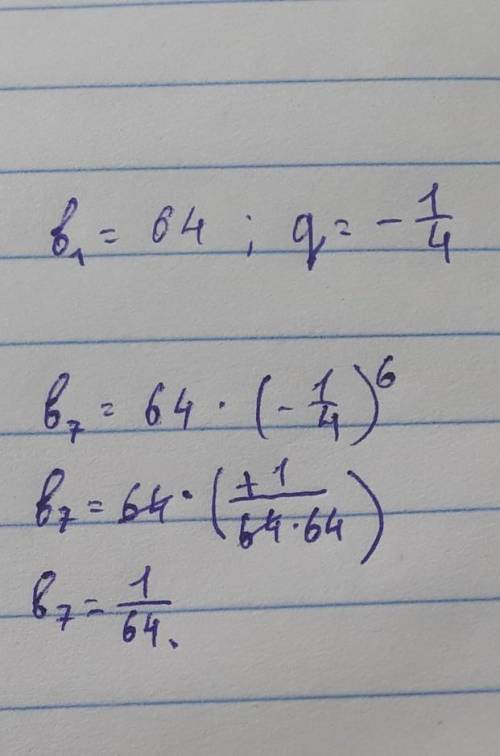 b₁ = 64 ; q = - 1/4
b₇ = 64 · (- 1/4)⁶
b₇ = 64 · (+1/(64·64))
b₇ = 1/64.